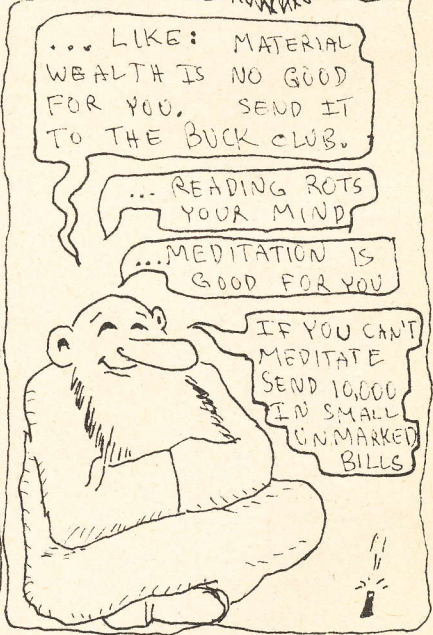 ... LIKE: MATERIAL
WEALTH IS NO GOOD
FOR YOU. SEND IT
TO THE BUCK CLUB.
... READING ROTS
YOUR MIND
...MEDITATION IS
GOOD FOR YOU
IF YOU CAN'T
MEDITATE
SEND 10,000
IN SMALL
UNMARKED
BILLS